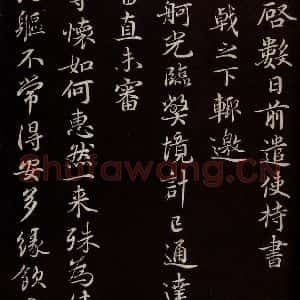 啓數日前遣使持書
戟之下輙邀
舸光臨獘境計已通達
審直未審
懷如何惠然来殊為
軀不常得安多緣飲
Shufawang.CN